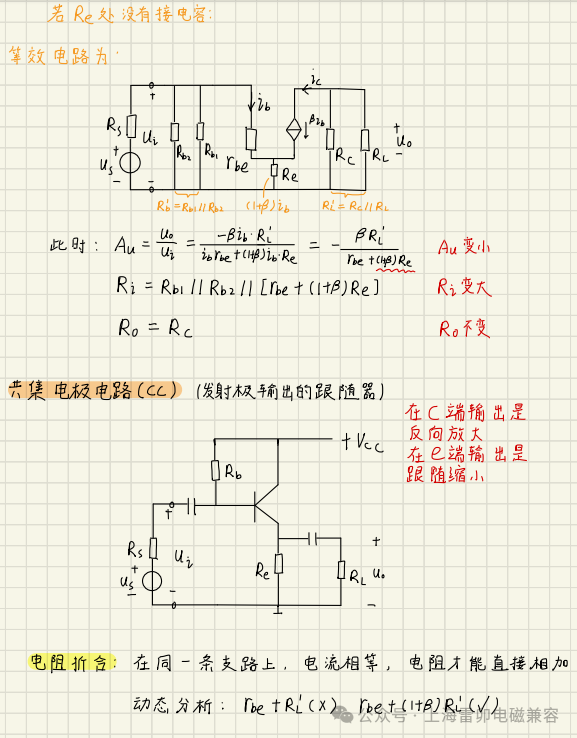 若 Re 处没有接电容:
等效电路为:
ic
ib
βib
Rs
+
Ui
Rb2
Rb1
rbe
Re
RC
RL
+
uo
-
+
us
-
-
R'b = Rb1 // Rb2
(1+β)ib
R'L = RC // RL
此时: Au = uo/ui = -βib·RL'/(ibrbe+(1+β)ib·Re) = - βRL'/(rbe+(1+β)Re)
Au 变小
Ri = Rb1 // Rb2 // [rbe + (1+β)Re]
Ri 变大
Ro = RC
Ro 不变
共集电极电路(CC) (发射极输出的跟随器)
在C端输出是
反向放大
在e端输出是
跟随缩小
+VCC
Rb
+
Rs
Ui
Re
RL
+
uo
-
+
us
-
-
电阻折合: 在同一条支路上, 电流相等, 电阻才能直接相加
动态分析: rbe + RL' (×) rbe + (1+β)RL' (√)
公众号·上海雷卯电磁兼容